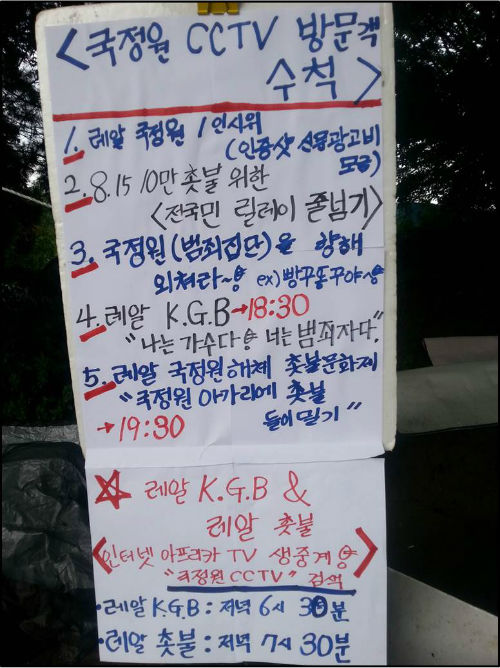 <국정원 CCTV 방문객
수칙>
1. 레알 국정원 1인시위
(인증샷 신문광고비
모금)
2. 8.15 10만 촛불 위한
<전국민 릴레이 줄넘기>
3. 국정원(범죄집단)을 향해
외쳐라~ ex)빵꾸똥꾸야~
4. 레알 K.G.B→18:30
"나는 가수다 너는 범죄자다"
5. 레알 국정원 해체 촛불문화제
"국정원 아가리에 촛불
들이밀기"
→19:30
☆ 레알 K.G.B &
레알 촛불
<인터넷 아프리카 TV 생중계>
"국정원 CCTV" 검색
•레알 K.G.B : 저녁 6시 30분
•레알 촛불 : 저녁 7시 30분